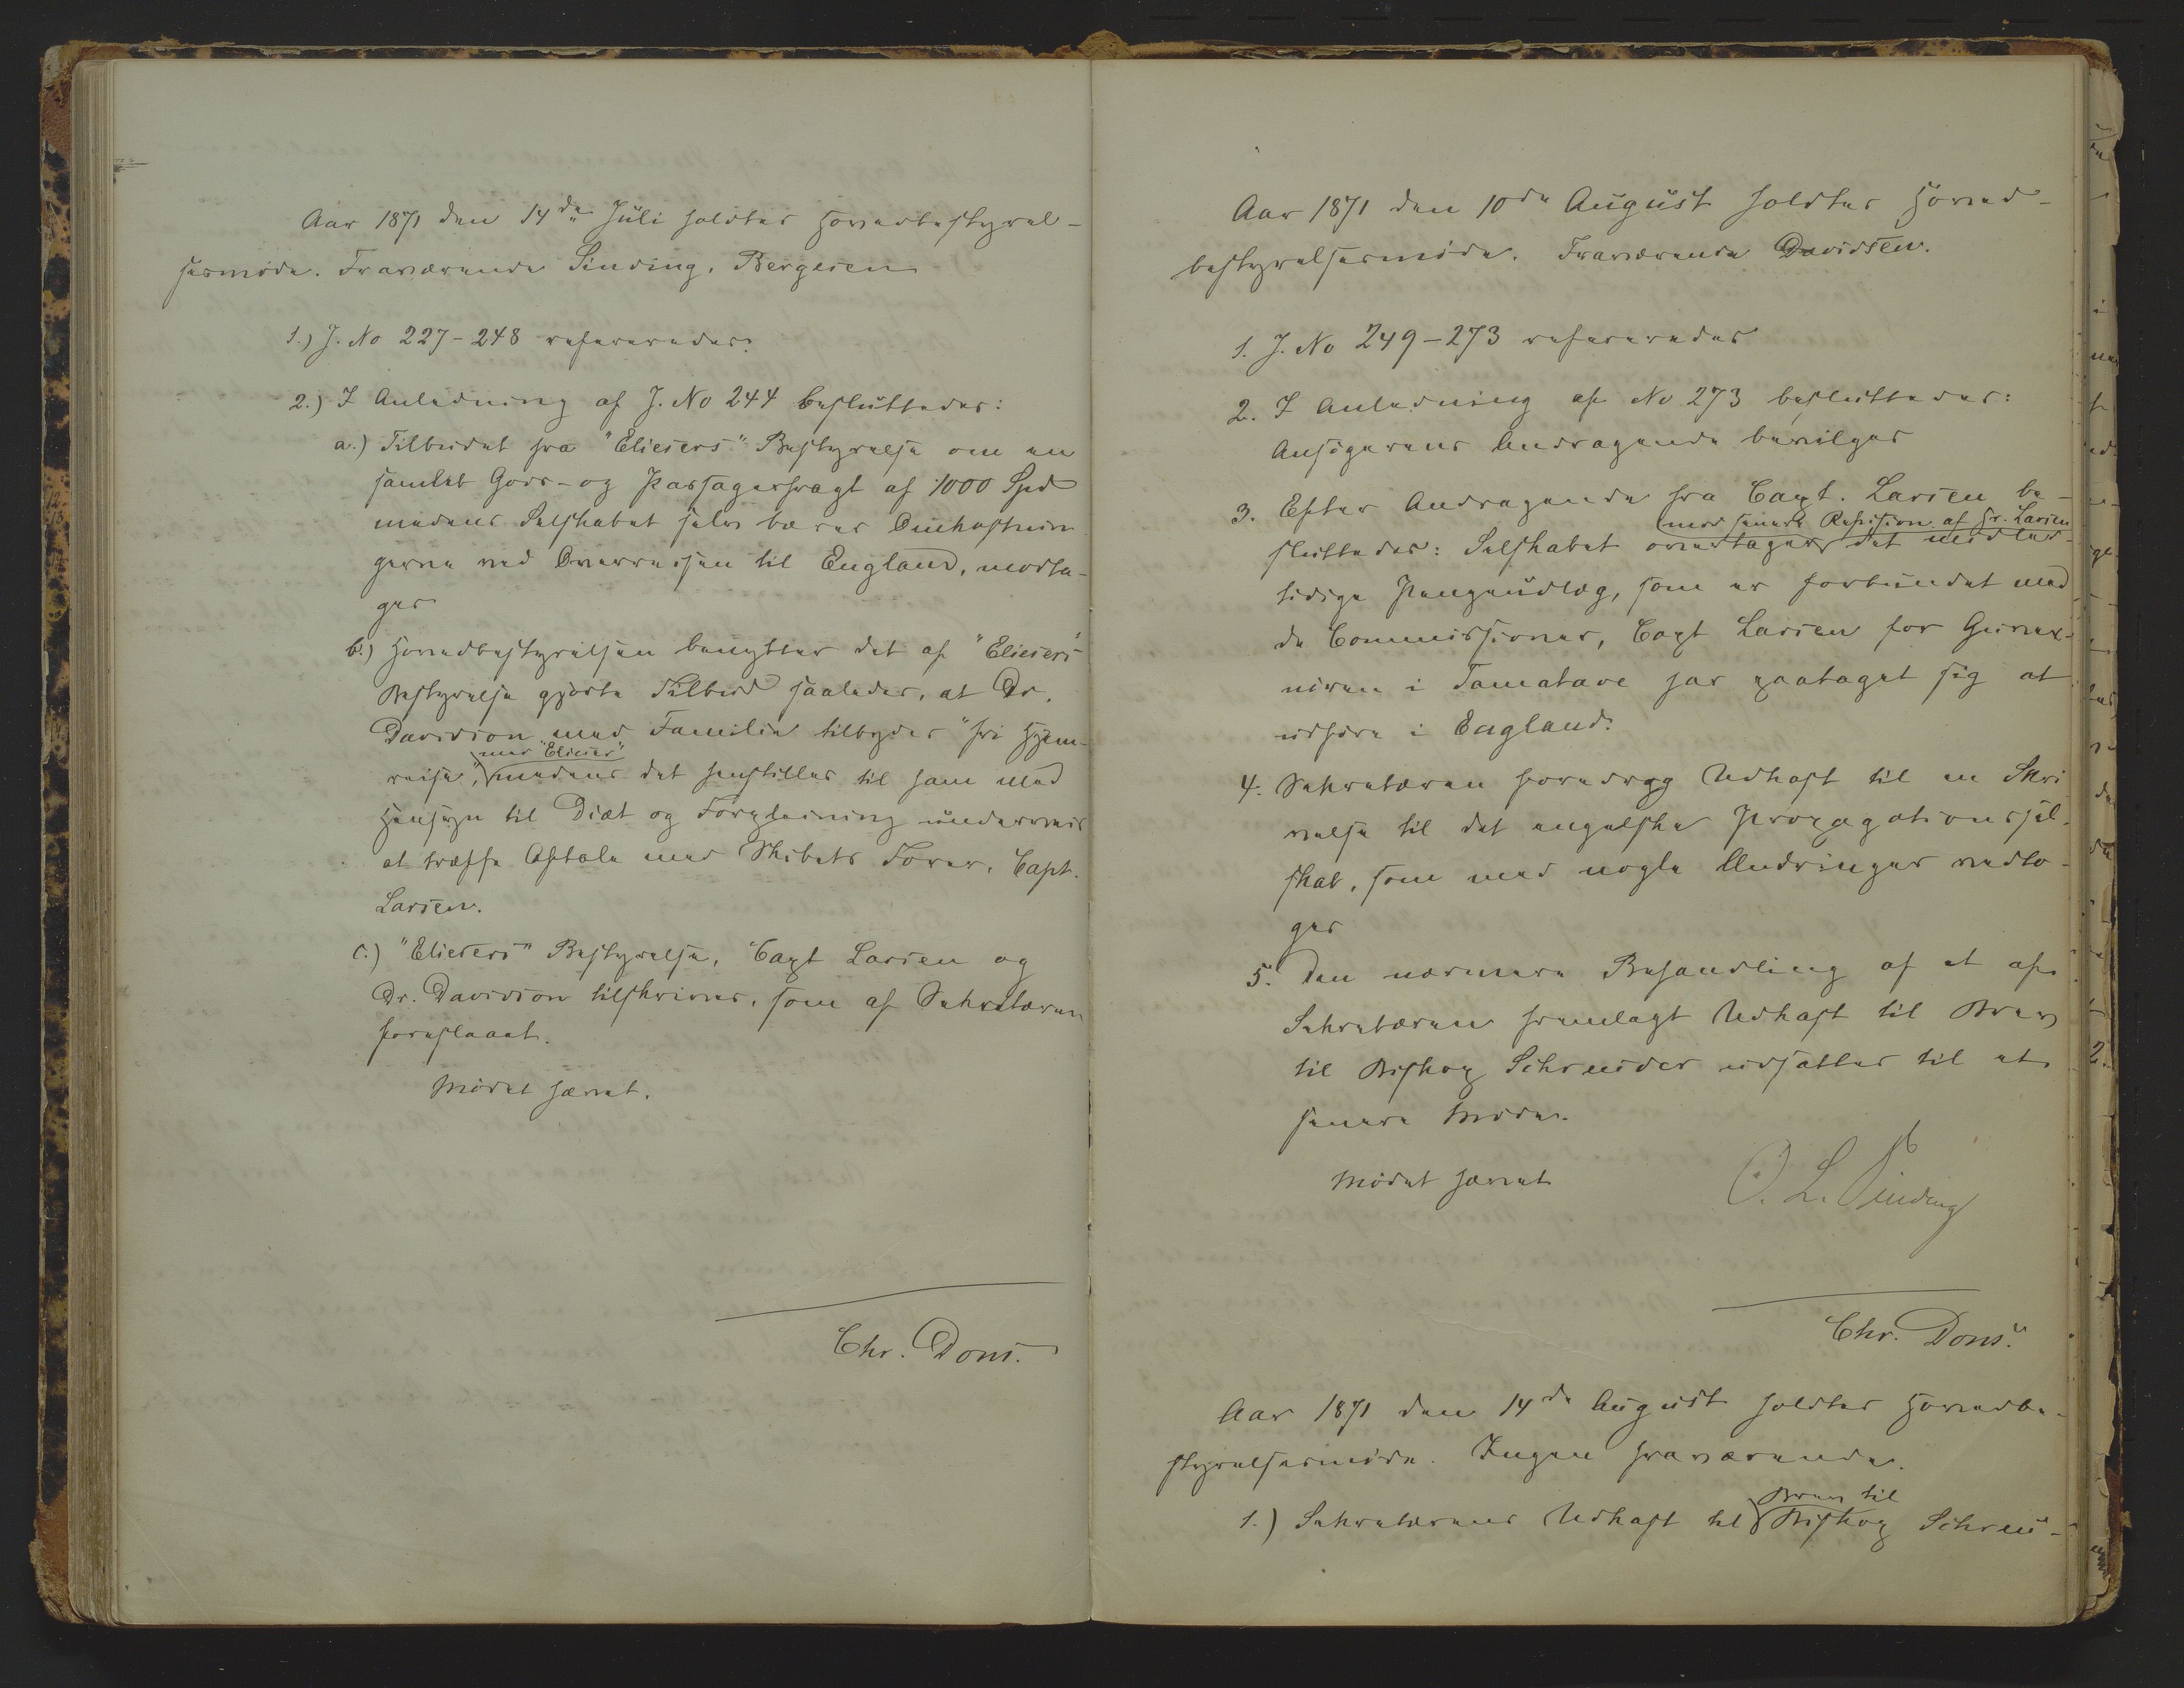 Aar 1871 den 14de Juli holdtes Hovedbestyrel-
sesmøde. Fraværende Sinding, Bergesen
1.) J. No 227-248 refereredes.
2.) I Anledning af J. No 244 besluttedes:
a.) Tilbudet fra "Eliesers" Bestyrelse om en
samlet Gods- og Passagerfragt af 1000 Spd
medens Selskabet selv bærer Omkostnin
gerne ved Overreisen til England, modta-
ges
b.) Hovedbestyrelsen benytter det af "Eliesers"
Bestyrelse gjorte Tilbud saaledes, at Dr.
Davidson med Familie tilbydes "fri Hjem-
med "Elieser"
reise", medens det henstilles til ham med
Hensyn til Diæt og Forpleining underveis
at træffe Aftale med Skibets Fører, Capt.
Larsen.
c.) "Eliesers" Bestyrelse, Capt Larsen og
Dr. Davidson tilskrives, som af Sekretæren
foreslaaet.
Mødet hævet.
Chr. Dons.
Aar 1871 den 10de August holdtes Hoved-
bestyrelsesmøde. Fraværende Davidsen.
1. J. No 249-273 refereredes
2. I Anledning af No 273 besluttedes:
Ansøgerens Andragende bevilges
3. Efter Andragende fra Capt. Larsen be-
mod senere Refusion af Hr. Larsen
sluttedes: Selskabet overtager det midler-
tidige Pengeudlæg, som er forbundet med
de Commissioner, Capt Larsen for Guver-
nøren i Tamatave har paataget sig at
udføre i England.
4. Sekretæren foredrog Udkast til en Skri
velse til det engelske Propagationssel-
skab, som med nogle Ændringer vedto-
ges
5. Den nærmere Behandling af et af
Sekretæren fremlagt Udkast til Brev
til Biskop Schreuder udsattes til et
senere Møde.
Mødet hævet
O. L. Sinding
Chr. Dons.
Aar 1871 den 14de August holdtes Hovedbe-
styrelsesmøde. Ingen fraværende.
Brev til
1.) Sekretærens Udkast til Biskop Schreu-